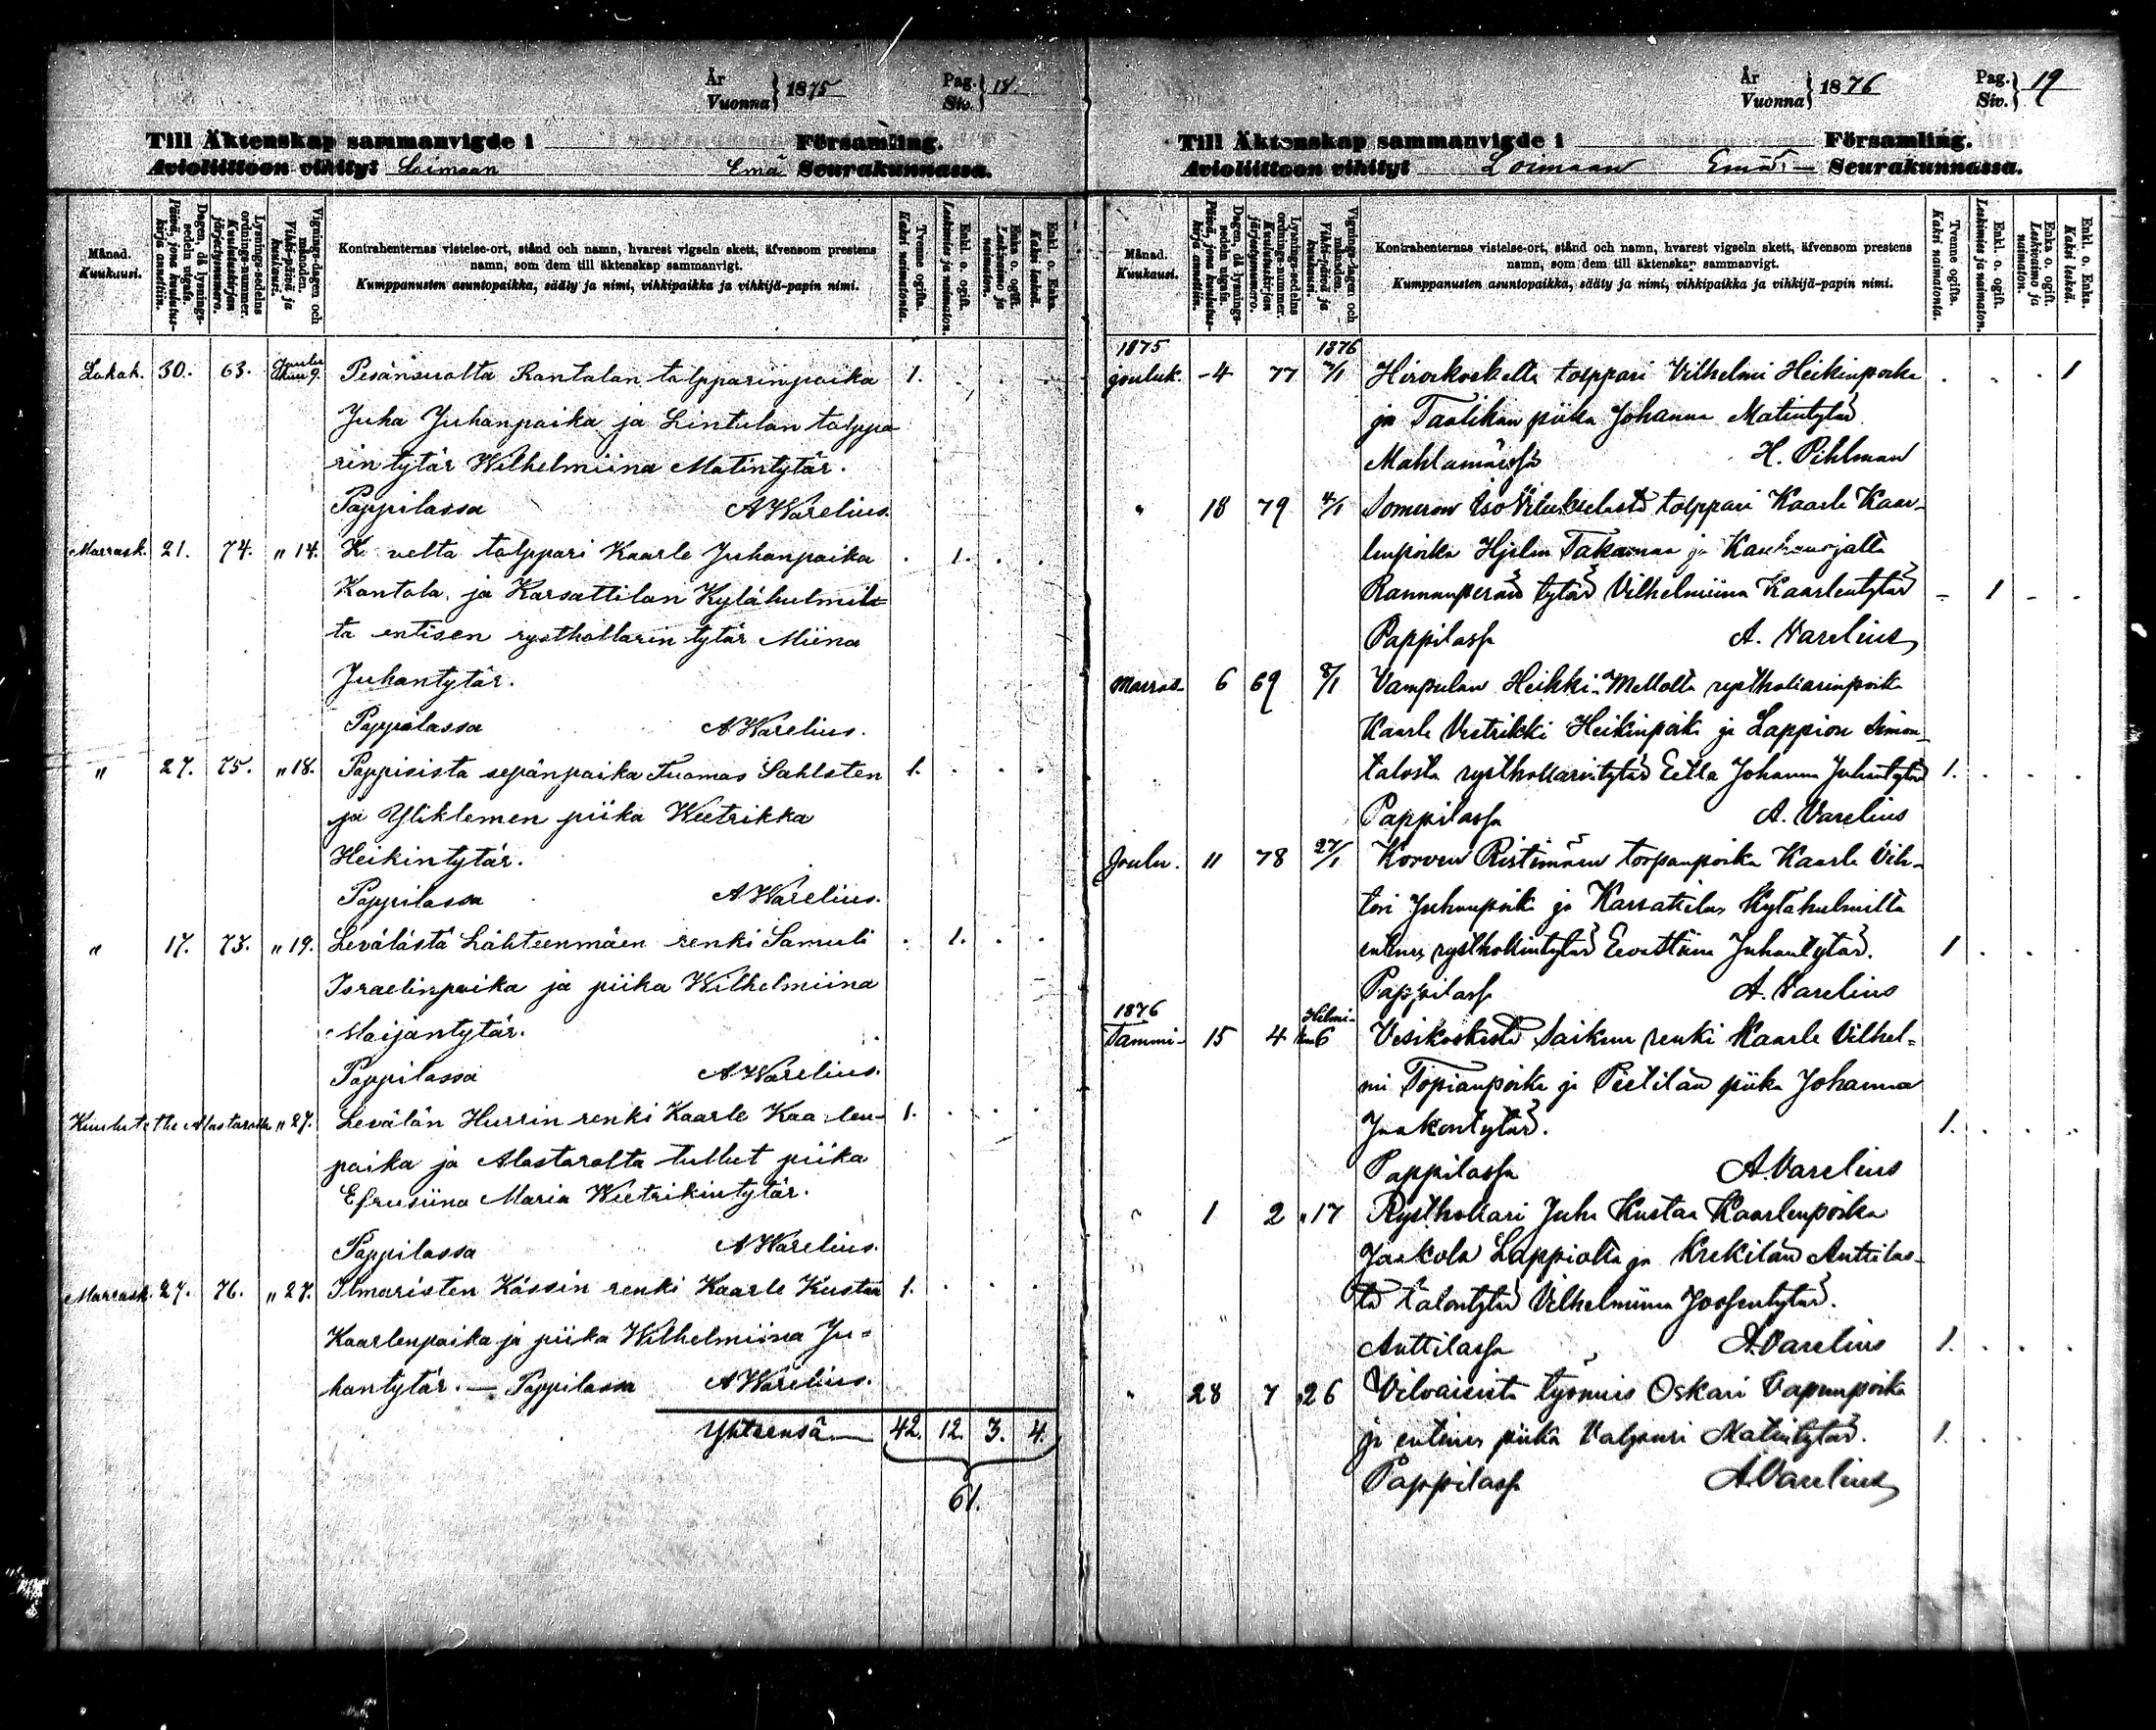 År
Vuonna } 1875 Pag. Siv. } 18.
Till Äktenskap sammanvigde i Församling.
Avioliittoon vihityt Loimaan Emä Seurakunnassa.
Månad. Kuukausi.
Dagen, då lysningssedeln utgafs. Päivä, jona kuulutuskirja annettiin.
Lysnings-sedelns ordnings-nummer. Kuulutuskirjan järjestysnumero.
Vignings-dagen och månaden. Vihki-päivä ja kuukausi.
Kontrahenternas vistelse-ort, stånd och namn, hvarest vigseln skett, äfvensom prestens
namn, som dem till äktenskap sammanvigt.
Kumppanusten asuntopaikka, sääty ja nimi, vihkipaikka ja vihkijä-papin nimi.
Tvenne ogifta. Kaksi naimatonta.
Enkl. o. ogift. Leskimies ja naimaton.
Enka o. ogift. Leskivaimo ja naimaton.
Enkl. o. Enka. Kaksi leskeä.
Lokak. 30. 63. Joulukuu 9. Pesänsuolta Rantalan talpparinpoika 1.
Juha Juhanpoika ja Lintulan talppa
rin tytär Wilhelmiina Matintytär.
Pappilassa A Warelius.
Marrask. 21. 74. " 14. velta talppari Kaarle Juhanpoika 1.
Kantola, ja Karsattilan Kylähulmil
ta entisen rysthollarin tytär Miina
Juhantytär.
Pappilassa A Warelius.
" 27. 75. " 18. Pappisista sepänpoika Tuomas Sahlsten 1.
ja Yliklemen piika Weetrikka
Heikintytär.
Pappilassa A Warelius.
" 17. 73. " 19. Levälästä Lähteenmäen renki Samuli 1.
Israelinpoika ja piika Wilhelmiina
Maijantytär.
Pappilassa A Warelius.
Kuulutettu Alastarolla " 27. Levälän Hurrin renki Kaarle Kaarlen- 1.
poika ja Alastarolta tullut piika
Efrusiina Maria Weetrikintytär.
Pappilassa A Warelius.
Marrask. 27. 76. " 27. Ilmaristen Kässin renki Kaarle Kustaa 1.
Kaarlenpoika ja piika Wilhelmiina Ju=
hantytär. — Pappilassa A Warelius.
Yhteensä 42. 12. 3. 4.
61.
År
Vuonna } 1876 Pag. Siv. } 19
Till Äktenskap sammanvigde i Församling.
Avioliittoon vihityt Loimaan Emä- Seurakunnassa.
Månad. Kuukausi.
Dagen, då lysningssedeln utgafs. Päivä, jona kuulutuskirja annettiin.
Lysnings-sedelns ordnings-nummer. Kuulutuskirjan järjestysnumero.
Vignings-dagen och månaden. Vihki-päivä ja kuukausi.
Kontrahenternas vistelse-ort, stånd och namn, hvarest vigseln skett, äfvensom prestens
namn, som dem till äktenskap sammanvigt.
Kumppanusten asuntopaikka, sääty ja nimi, vihkipaikka ja vihkijä-papin nimi.
Tvenne ogifta. Kaksi naimatonta.
Enkl. o. ogift. Leskimies ja naimaton.
Enka o. ogift. Leskivaimo ja naimaton.
Enkl. o. Enka. Kaksi leskeä.
1875 1876
jouluk. 4 77 Hirvikoskelta torppari Vilhelmi Heikinpoika 1
ja Taatikan piika Johanna Matintytär
Mahlamäessä H. Pihlman
" 18 79 4/1 Someron Iso talppari Kaarle Kaar-
lenpoika Hjelm ja Kauhanojalta
Rannanperän tytär Vilhelmiina Kaarlentytär 1
Pappilassa A. Varelius
Marras- 6 69 8/1 Vampulan Heikki-Mellolta rysthollarinpoika
Kaarle Vestrikki Heikinpoika ja Lappion Simon-
talosta rysthollarintytär Eetla Johanna Juhantytär 1.
Pappilassa A. Varelius
Joulu. 11 78 27/1 Korven Ristimäen torpanpoika Kaarle Vih-
tori Juhanpoika ja Karsattilan Kylähulmilta
entinen rysthollintytär Eevastiina Juhantytär. 1
Pappilassa A. Varelius
1876 Helmi-
Tammi- 15 4 kuu 6 Vesikoskesta Saikun renki Kaarle Vilhel=
mi Topianpoika ja Peltilän piika Johanna
Jaakontytär. 1.
Pappilassa A. Varelius
" 1 2 " 17 Rysthollari Juha Kustaa Kaarlenpoika
Jaakola Lappiolta ja Krekilän Anttilas-
ta talontytär Vilhelmiina Joosentytär.
Anttilassa A. Varelius 1.
" 28 7 " 26 Vilvaisista työmies Oskari Vapunpoika
ja entinen piika Valpuri Matintytär. 1.
Pappilassa A. Varelius